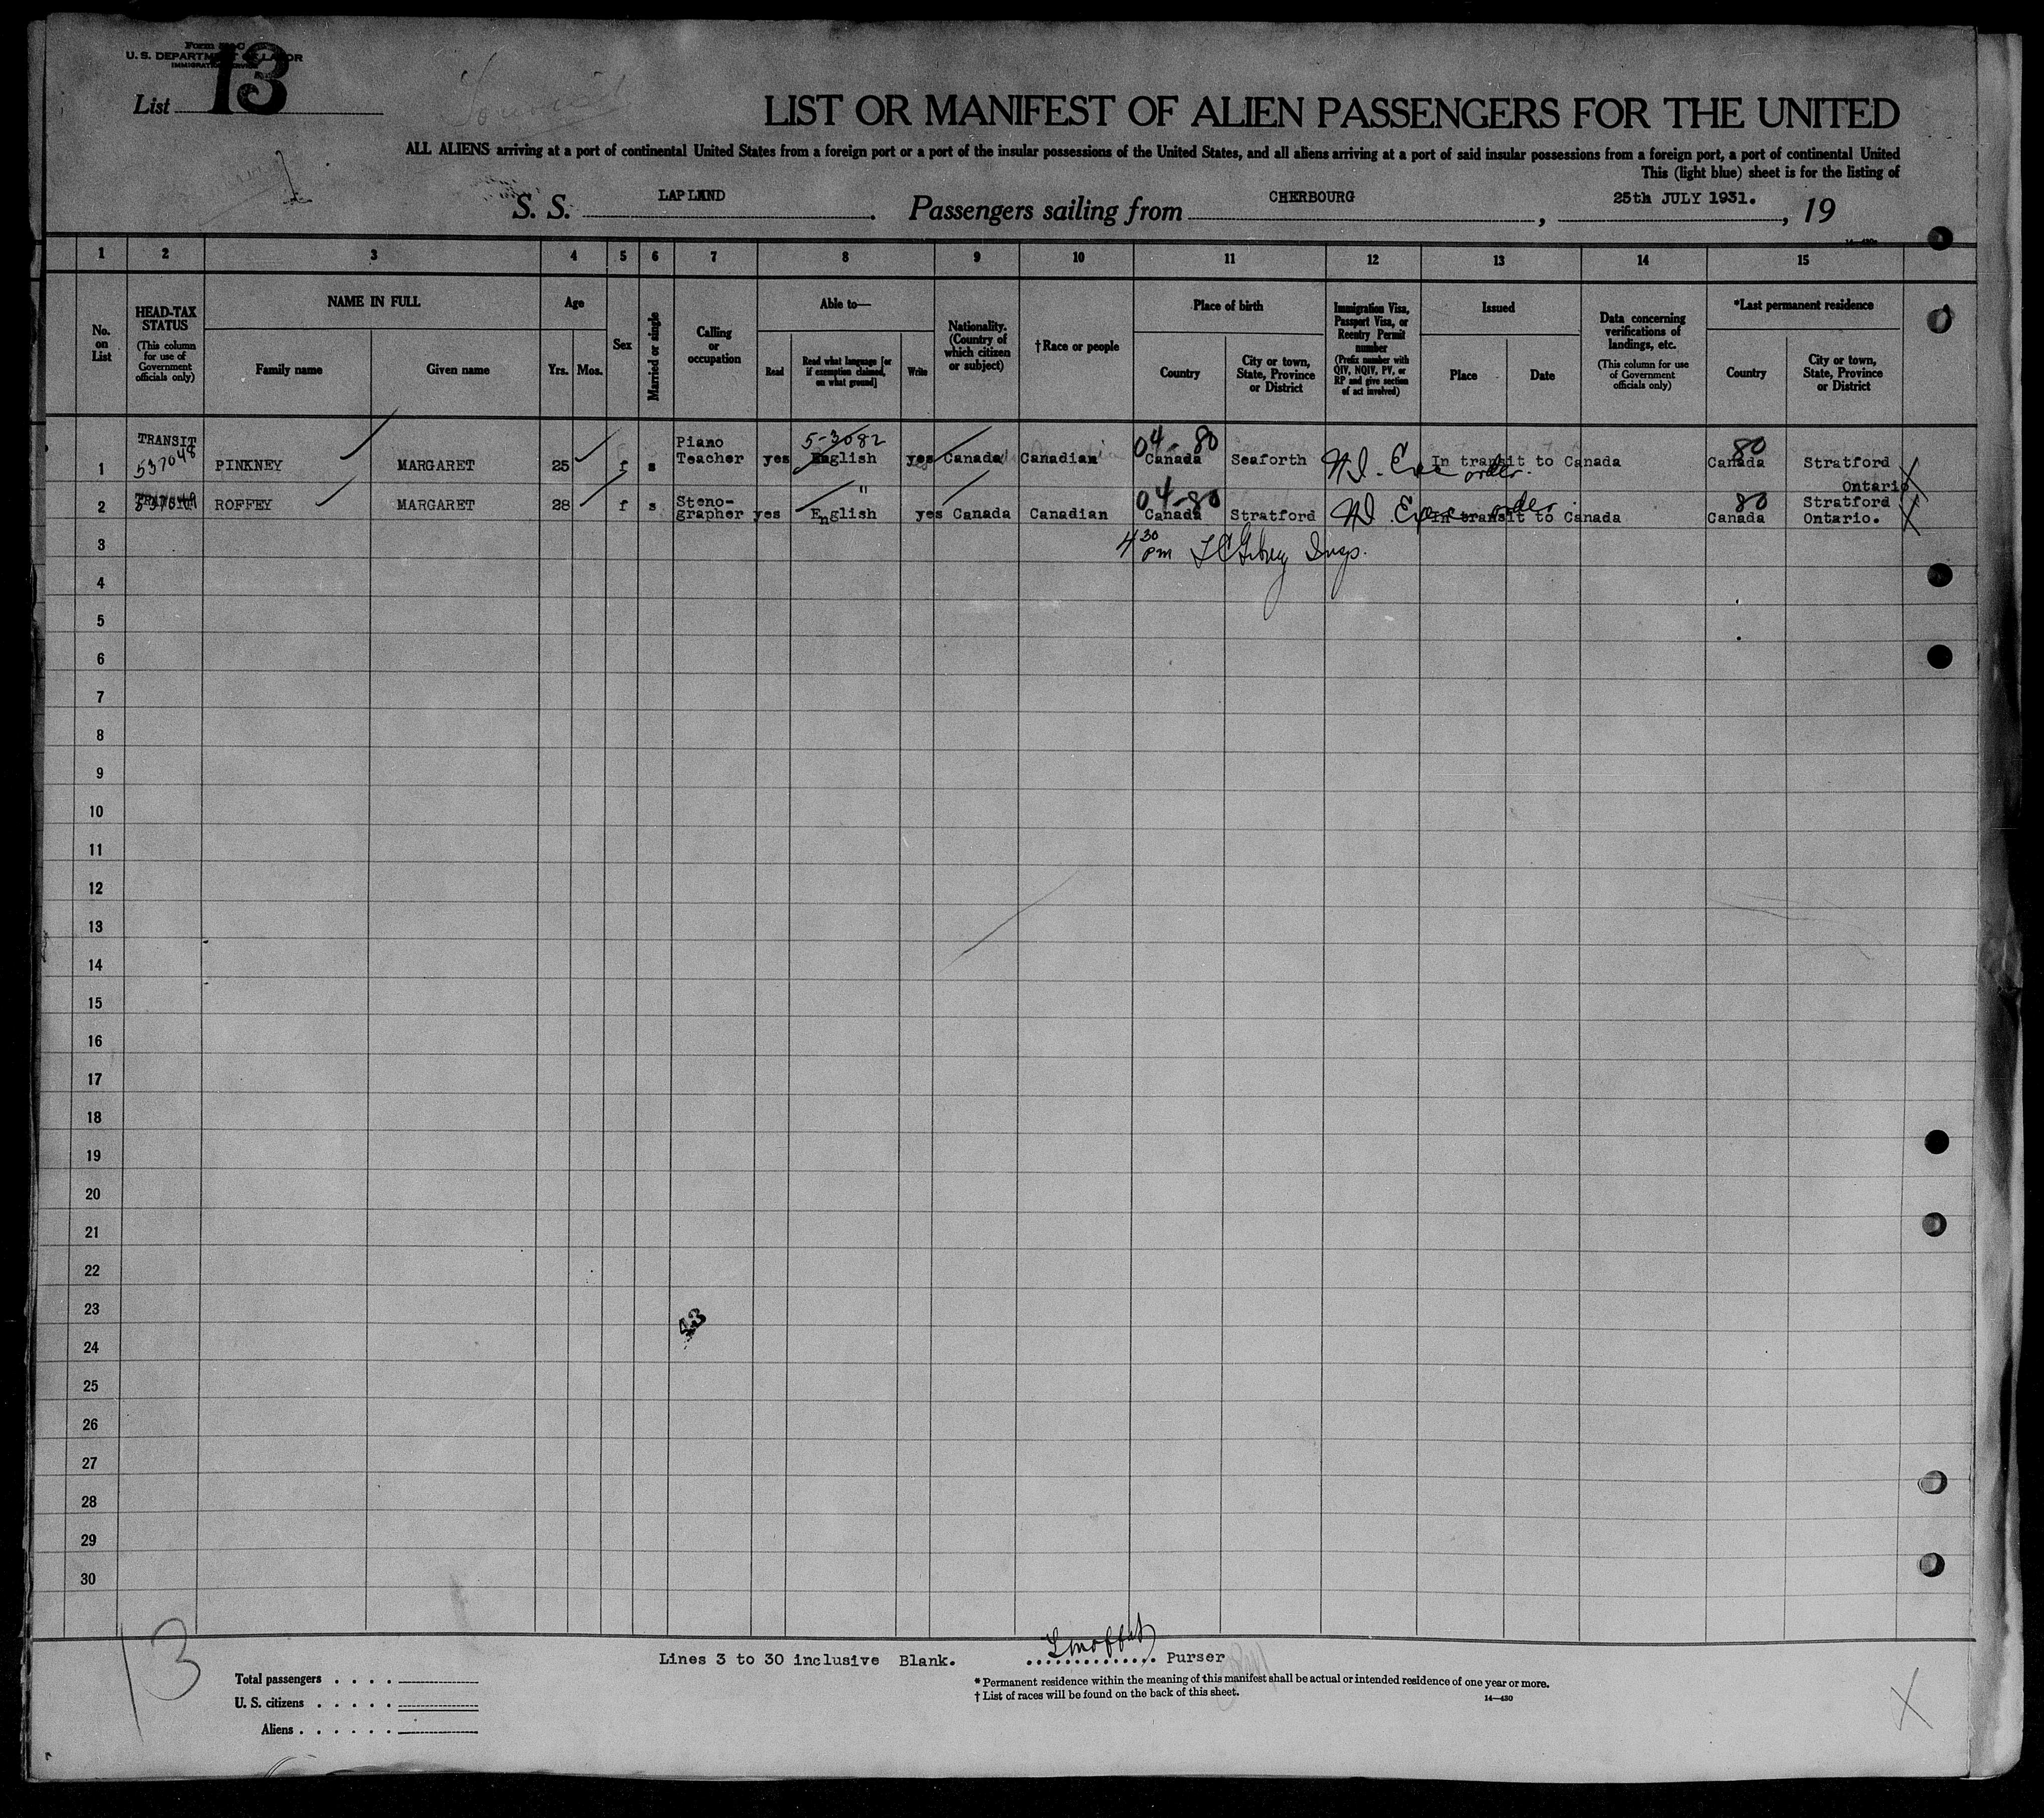 U. S. DEPARTMENT OF LABOR
List 13
Tourist
LIST OR MANIFEST OF ALIEN PASSENGERS FOR THE UNITED
ALL ALIENS arriving at a port of continental United States from a foreign port or a port of the insular possessions of the United States, and all aliens arriving at a port of said insular possessions from a foreign port, a port of continental United
This (light blue) sheet is for the listing of
S. S. LAPLAND. Passengers sailing from CHERBOURG, 25th JULY 1931., 19
1 2 3 4 5 6 7 8 9 10 11 12 13 14 15
No. on List
HEAD-TAX STATUS
(This column for use of Government officials only)
NAME IN FULL
Family name
Given name
Age
Yrs. Mos.
Sex
Married or single
Calling or occupation
Able to—
Read
Read what language [or if exemption claimed, on what ground]
Write
Nationality. (Country of which citizen or subject)
†Race or people
Place of birth
Country
City or town, State, Province or District
Immigration Visa, Passport Visa, or Reentry Permit number
(Prefix number with QIV, NQIV, PV, or RP and give section of act involved)
Issued
Place
Date
Data concerning verifications of landings, etc.
(This column for use of Government officials only)
*Last permanent residence
Country
City or town, State, Province or District
TRANSIT 537048 Piano 5-3082 04-80 80
1 PINKNEY MARGARET 25 f s Teacher yes English yes Canada Canadian Canada Seaforth In transit to Canada Canada Stratford
Ontario
2 ROFFEY MARGARET 28 f s Steno- " 04-80 80 Stratford
grapher yes English yes Canada Canadian Canada Stratford In transit to Canada Canada Ontario.
3 4 30 pm Insp.
4
5
6
7
8
9
10
11
12
13
14
15
16
17
18
19
20
21
22
23
43
24
25
26
27
28
29
30
13
Lines 3 to 30 inclusive Blank. Purser
Total passengers
U. S. citizens
Aliens
* Permanent residence within the meaning of this manifest shall be actual or intended residence of one year or more.
† List of races will be found on the back of this sheet. 14—430